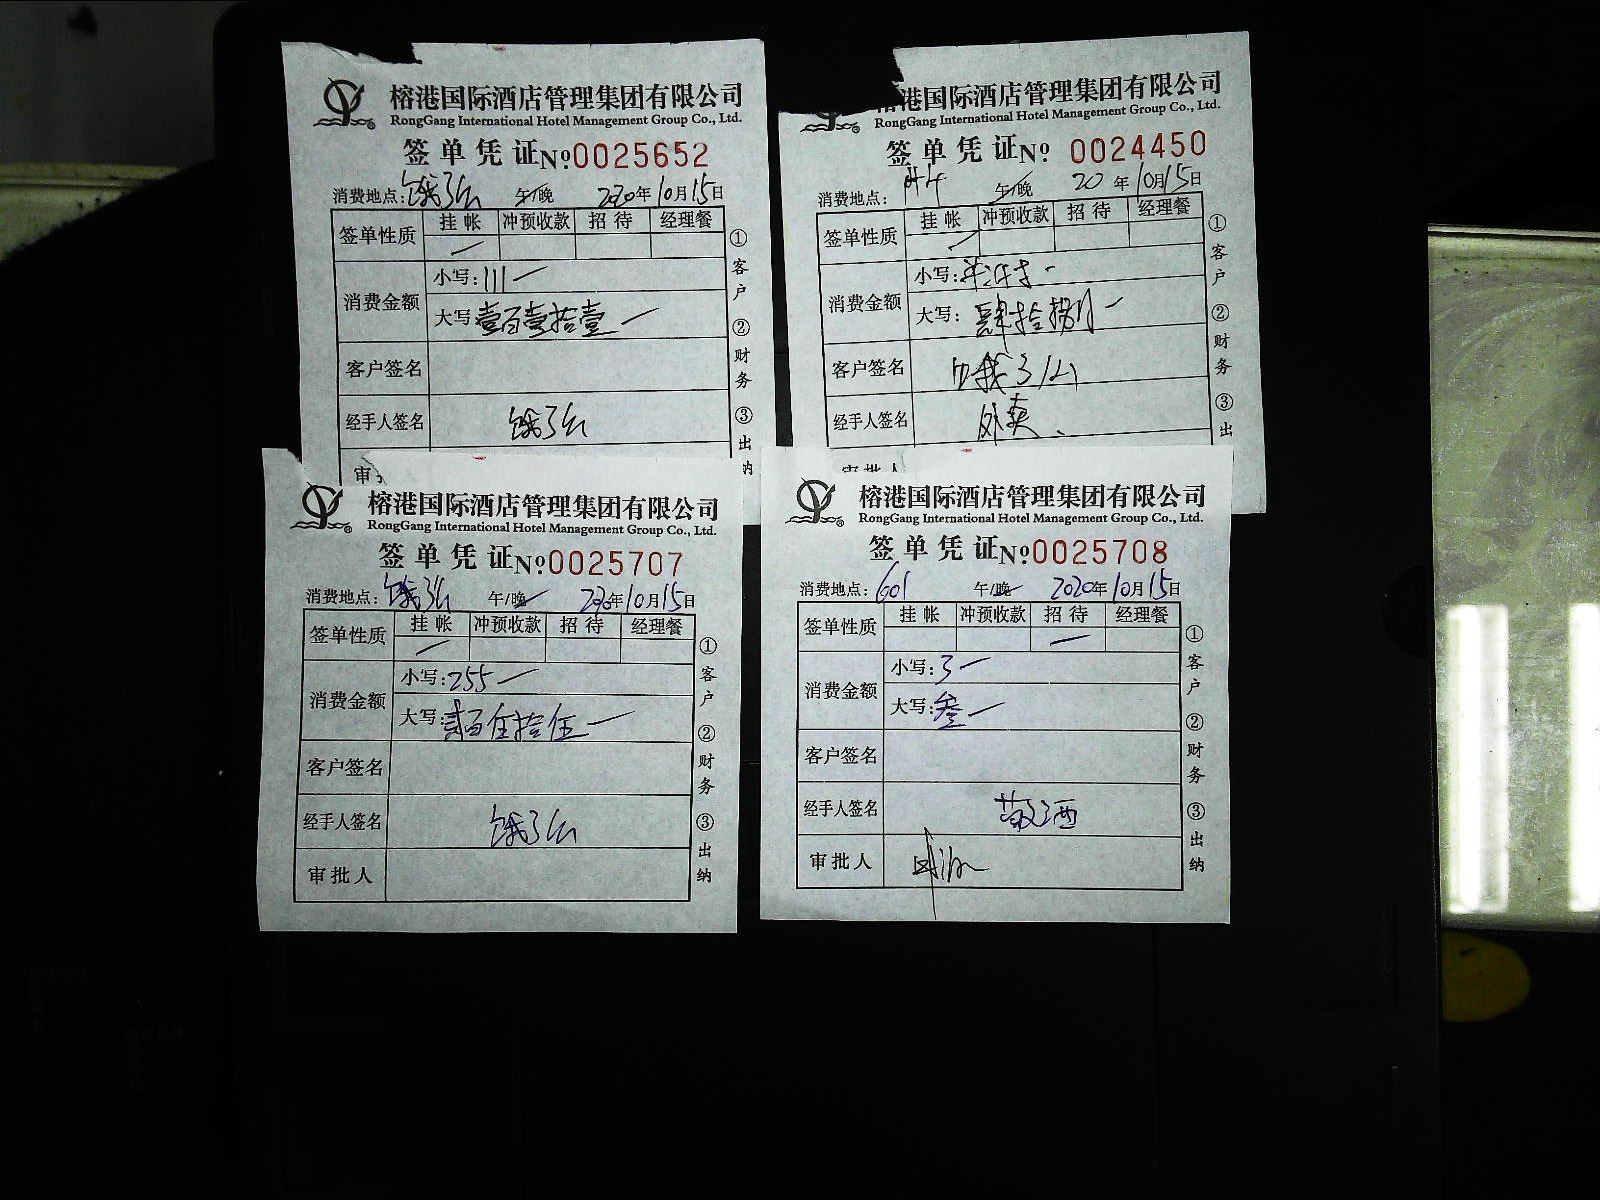 榕港国际酒店管理集团有限公司
RongGang International Hotel Management Group Co., Ltd.
签单凭证 No 0025652
消费地点: 饿了么 午/晚 2020年10月15日
签单性质 挂帐 冲预收款 招待 经理餐
消费金额 小写: 111一
大写 壹百壹拾壹一
客户签名
经手人签名 饿了么
审
①客户 ②财务 ③出纳
港国际酒店管理集团有限公司
RongGang International Hotel Management Group Co., Ltd.
签单凭证 No 0024450
消费地点: 午/晚 20年10月15日
签单性质 挂帐 冲预收款 招待 经理餐
消费金额 小写:
大写: 肆拾捌一
客户签名 饿了么
经手人签名 外卖
审批人
①客户 ②财务 ③出
榕港国际酒店管理集团有限公司
RongGang International Hotel Management Group Co., Ltd.
签单凭证 No 0025707
消费地点: 饿了么 午/晚 2020年10月15日
签单性质 挂帐 冲预收款 招待 经理餐
消费金额 小写: 255一
大写: 贰百伍拾伍一
客户签名
经手人签名 饿了么
审批人
①客户 ②财务 ③出纳
榕港国际酒店管理集团有限公司
RongGang International Hotel Management Group Co., Ltd.
签单凭证 No 0025708
消费地点: 601 午/晚 2020年10月15日
签单性质 挂帐 冲预收款 招待 经理餐
消费金额 小写: 3一
大写: 叁一
客户签名
经手人签名 敬酒
审批人
①客户 ②财务 ③出纳